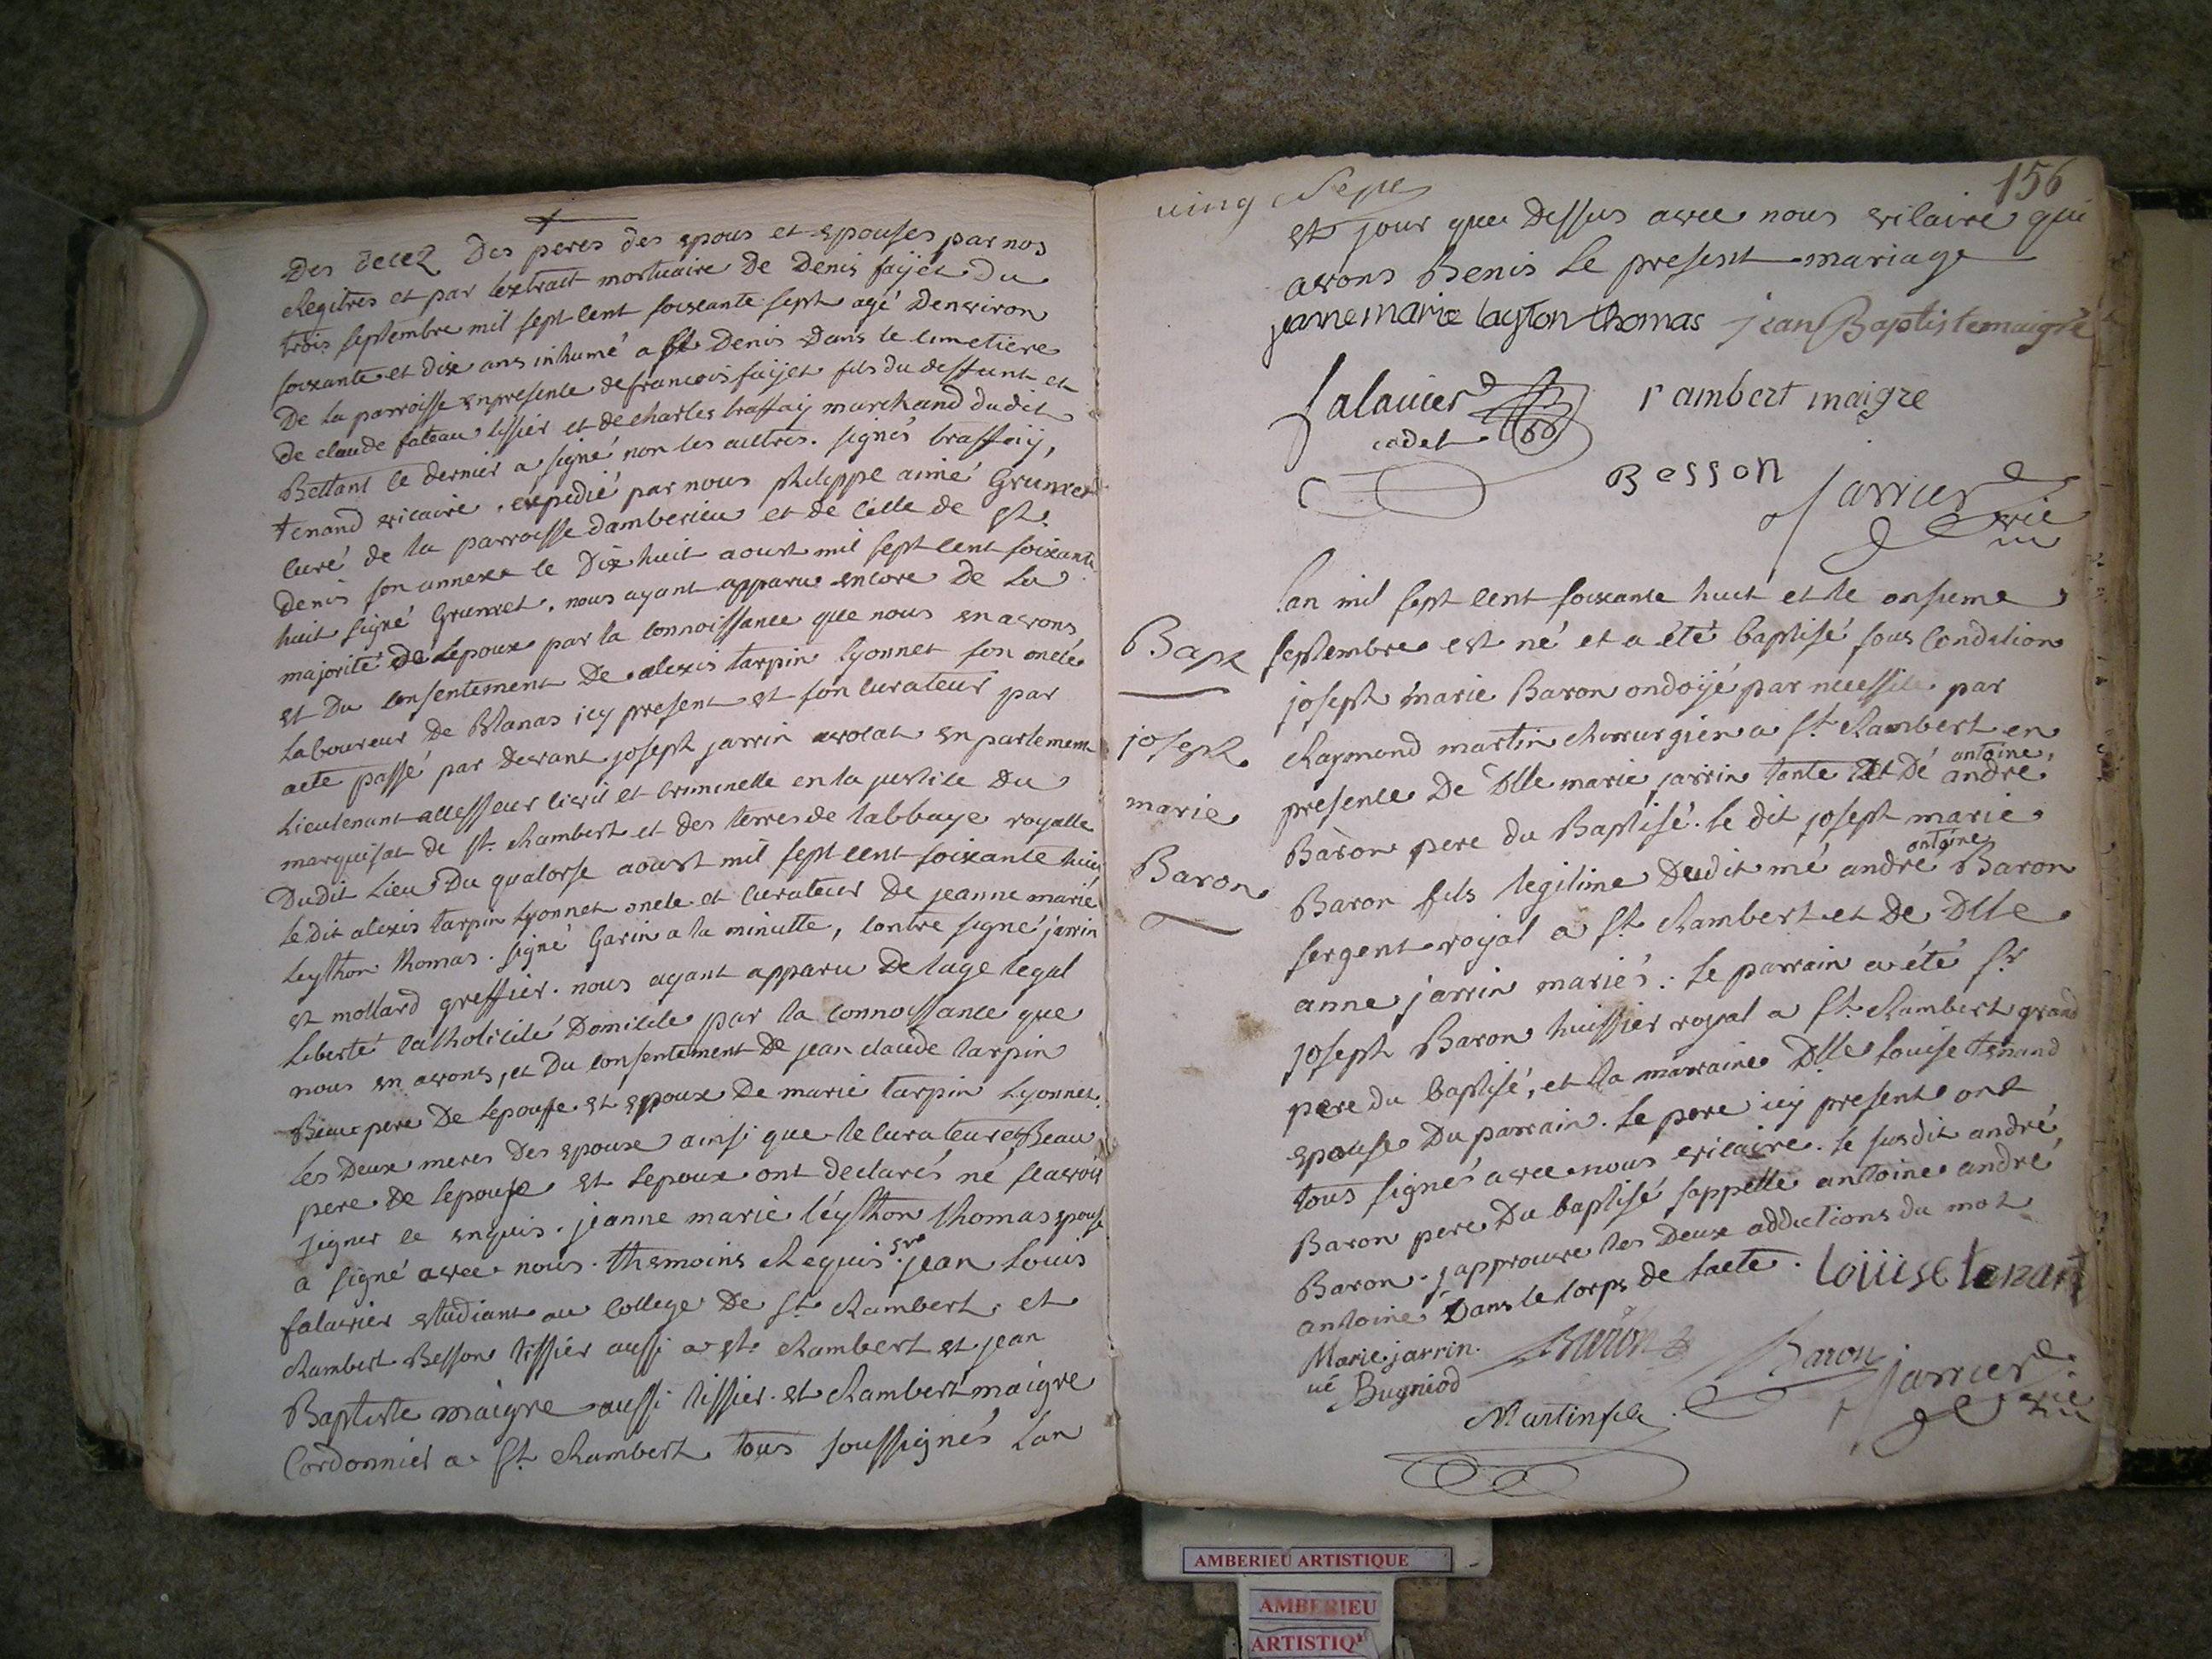 Des decez Des peres des epous et epouses par nos
Regitres et par lextrait mortuaire de Denis faÿet Du
trois septembre mil sept cent soixante sept agé Denviron
soixante et dix ans inhumé a st Denis Dans le cimetiere
De la parroisse en presence de francois faÿet fils du deffunt et
De claude fateau tissier et de charles traffaÿ marchand dudit
Bettant le dernier a signé non les autres. signés traffaÿ,
tenand vicaire. expedié par nous philippe aimé Grumet
curé de la parroisse damberieu et de celle de st.
Denis son annexe le Dix huit aoust mil sept cent soixante
huit signé Grumet. nous ayant apparu encore De La
majorité De lepoux par la connoissance que nous en avons
et Du consentement De alexis tarpin lyonnet son oncle
Laboureur De Blanas icy present et son curateur par
acte passé par devant joseph jarrin avocat en parlement
Lieutenant assesseur civil et criminelle en la justice Du
marquisat de st. Rambert et des terres de labbaye royalle
Dudit Lieu Du quatorse aoust mil sept cent soixante huit
Le dit alexis tarpin Lyonnet oncle et curateur De jeanne marie
Leython thomas. signé Garin a la minutte, contre signé jarrin
et mollard greffier. nous ayant apparu De lage legal
Liberté catholicité Domicile par la connoissance que
nous en avons, et Du consentement De jean claude tarpin
Beau pere De lepouse et epoux De marie tarpin Lyonnet.
Les Deux meres Des epoux ainsi que le curateur et Beau
pere De lepouse et lepoux ont declarés né scavoir
signer ce enquis. jeanne marie léython thomas epouse
a signé avec nous. themoins Requis sr. jean Louis
falavier etudiant au College De st. Rambert, et
Rambert Besson tissier aussi a st. Rambert et jean
Baptiste maigre aussi tissier. et Rambert maigre
Cordonnier a st. Rambert tous soussignés Lan
ving Sept
156
et jour que Dessus avec nous vicaire qui
avons Benis Le present mariage
jeanne marie layton thomas jean Baptiste maigre
falavier
cadet
rambert maigre
Besson
Jarrier
vic
Bapt
joseph
marie
Baron
Lan mil sept cent soixante huit et le onsieme
septembre est né et a été baptisé sous Condition
joseph marie Baron ondoÿé par nécessité par
Raymond martin chirurgien a st. Rambert en
presence De Dlle marie jarrin tante et Dé antoine, andre
Baron pere du Baptisé. le dit joseph marie
Baron fils legitime Dudit me andré antoine Baron
sergent royal a st. Rambert et De Dlle
anne jarrin mariés: Le parrain a été sr
joseph Baron huissier royal a st. Rambert grand
pere du baptisé, et la marraine Dlle Louise tenand
epouse Du parrain. Le pere icy present ont
tous signés avec nous vicaire. le susdit andré
Baron pere Du baptisé sappelle antoine andré
Baron. japprouve les Deux additions du mot
antoine Dans le corps de lacte. Loüise tenant
Marie jarrin.
né Bugniod
Baron
Baron
Jarrier
vic
Martin fils
AMBERIEU ARTISTIQUE
AMBERIEU
ARTISTIQ